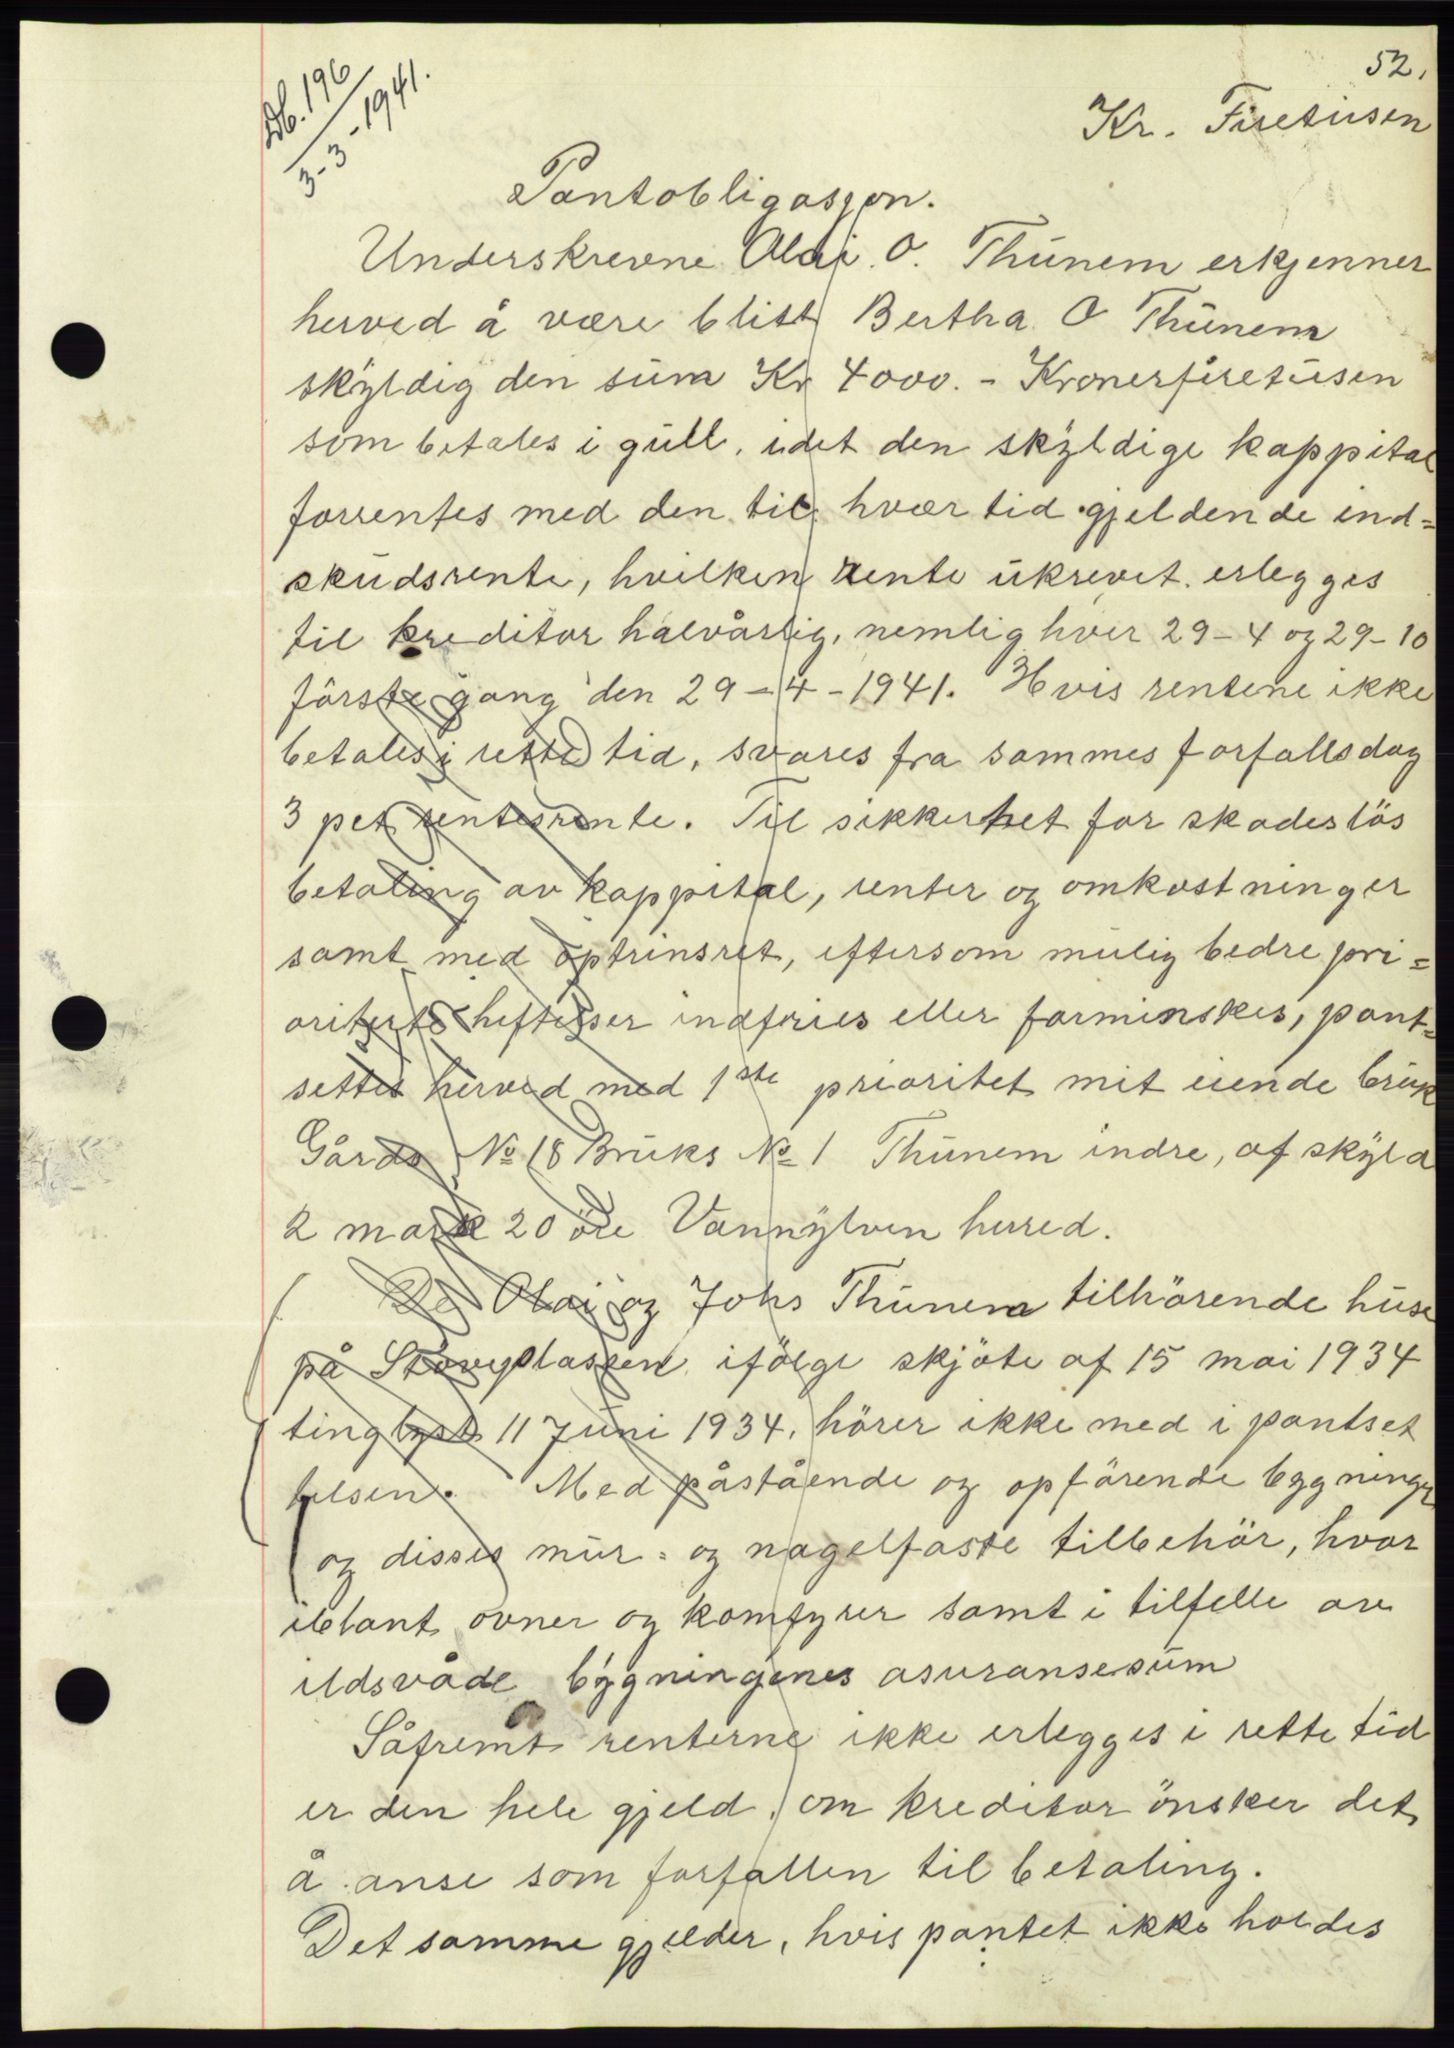 52.
Db. 196
3-3-1941.
Kr. Firetusen
Pantobligasjon.
Underskrevne Olai. O. Thunem erkjenner
herved å være blitt Bertha O Thunem
skyldig den sum Kr 4000.- Kronerfiretusen
som betales i gull, idet den skyldige kappital
forrentes med den til hvær tid gjeldende ind=
skudsrente, hvilken rente ukrevet erlegges
til kreditor halvårlig, nemlig hver 29-4 og 29-10
förste gang den 29-4-1941. Hvis rentene ikke
betales i rette tid, svares fra sammes forfallsdag
3 pct rentesrente. Til sikkerhet for skadeslös
betaling av kappital, renter og omkostninger
samt med optrinsret, eftersom mulig bedre pri=
oriterte heftelser indfries eller forminskes, pant=
settes herved med 1ste prioritet mit eiende bruk
Gårds No 18 Bruks No 1 Thunem indre, af skyld
2 mark 20 öre Vannylven herred.
De Olai og Johs Thunem tilhörende huse
på plassen ifölge skjöte af 15 mai 1934
tinglyst 11 Juni 1934, hörer ikke med i pantset
telsen. Med påstående og opförende bygninger
og disses mur= og nagelfaste tilbehör, hvor
iblant ovner og komfyrer samt i tilfelle av
ildsvåde bygningenes asuransesum
Såfremt renterne ikke erlegges i rette tid
er den hele gjeld, om kreditor önsker det,
å anse som forfallen til betaling.
Det samme gjelder, hvis pantet ikke holdes